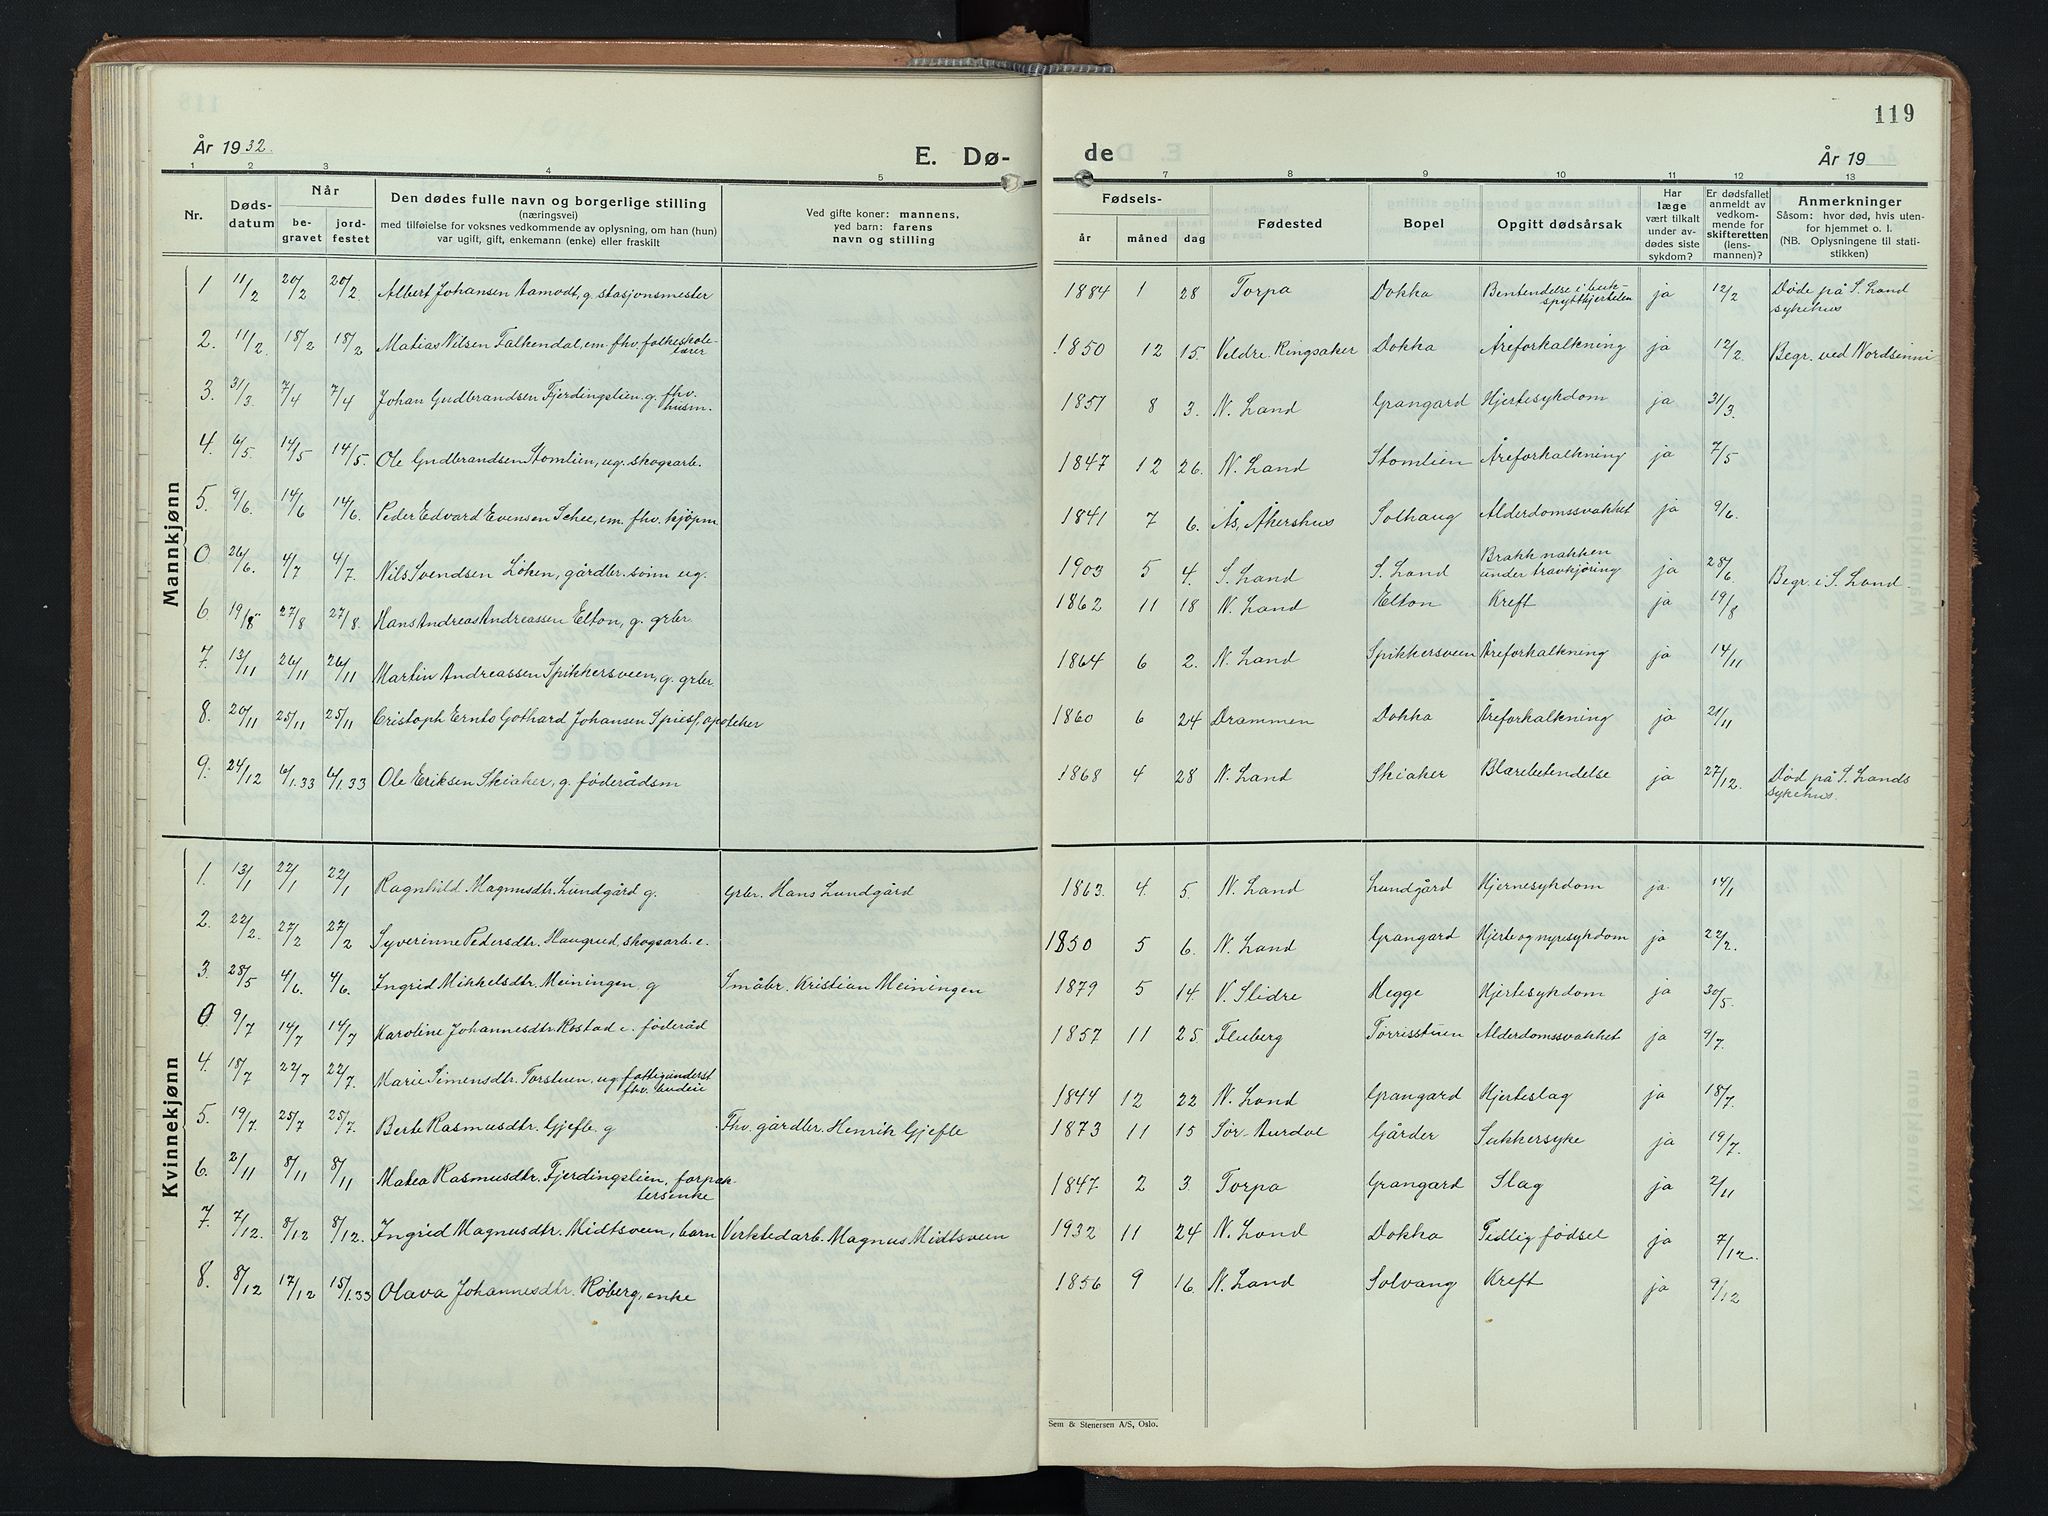 119
År 1932.
E. Dø-
de
År 19
1 2 3 4 5
7 8 9 10 11 12 13
Nr.
Dødsdatum
Når
begravet
jordfestet
Den dødes fulle navn og borgerlige stilling
(næringsvei)
med tilføielse for voksnes vedkommende av oplysning, om han (hun)
var ugift, gift, enkemann (enke) eller fraskilt
Ved gifte koner: mannens,
ved barn: farens
navn og stilling
Fødsels-
år måned dag
Fødested
Bopel
Opgitt dødsårsak
Har
læge
vært tilkalt
under av-
dødes siste
sykdom?
Er dødsfallet
anmeldt av
vedkom-
mende for
skifteretten
(lens-
mannen)?
Anmerkninger
Såsom: hvor død, hvis uten-
for hjemmet o. l.
(NB. Oplysningene til stati-
stikken)
Mannkjønn
1 11/2 20/2 20/2 Albert Johansen Aamodt, g. stasjonsmester 1884 1 28 Torpa Dokka Bentendelse i buk-
spyttkjertelen ja 12/2 Døde på S. Land
sykehus
2. 11/2. 18/2 18/2 Matias Nilsen Falkendal, em. fhv. folkeskole-
lærer 1850 12 15. Veldre. Ringsaker Dokka Åreforkalkning ja 12/2. Begr. ved Nordsinni
3. 31/3. 7/4 7/4 Johan Gudbrandsen Fjerdingslien, g. fhv.
husm. 1851 8 3. N. Land Grangard Hjertesykdom ja 31/3.
4. 6/5. 14/5 14/5. Ole Gudbrandsen Stomlien, ug. skogsarb. 1847 12 26. N. Land Stomlien Åreforkalkning ja 7/5
5. 9/6. 14/6 14/6. Peder Edvard Evensen Schee, em. fhv. kjøpm. 1841 7 6. Ås, Åkershus Solhaug Alderdomssvakhet ja 9/6.
0 26/6. 4/7 4/7. Nils Svendsen Løken, gårdbr. sønn ug. 1903 5 4. S. Land S. Land Brakk nakken
under travkjøring ja 28/6. Begr. i S. Land.
6 19/8 27/8 27/8. Hans Andreas Andreassen Elton, g. grbr. 1862 11 18 N. Land Elton Kreft ja 19/8
7. 13/11 26/11 26/11 Martin Andreassen Spikkersveen, g. grbr. 1864 6 2. N. Land Spikkersveen Åreforkalkning ja 14/11
8. 20/11 25/11 25/11 Cristoph Ernto Gothard Johansen Spiess, apoteker 1860 6 24 Drammen Dokka Åreforkalkning ja 21/11
9. 24/12 6/1.33 6/1.33 Ole Eriksen Skiaker, g. føderådsm 1868 4 28 N. Land Skiaker Blærebetendelse ja 27/12. Død på S. Lands
sykehus.
Kvinnekjønn
1. 13/1 22/1 22/1 Ragnhild Magnusdtr. Lundgård g. Grbr. Hans Lundgård 1863. 4. 5. N. Land Lundgård Hjernesykdom ja. 14/1
2. 22/2. 27/2 27/2 Syverinne Pedersdtr. Haugrud, skogsarb. e. 1850 5 6. N. Land Grangard Hjerte og nyresykdom ja 22/2.
3. 28/5 4/6. 4/6. Ingrid Mikkelsdtr. Meiningen, g Småbr. Kristian Meiningen 1879 5 14. V. Slidre Hegge Hjertesykdom ja 30/5.
0. 9/7 14/7 14/7 Karoline Johannesdtr. Rostad e. føderåd 1857 11 25. Fluberg Tørrisstuen Alderdomssvakhet ja 9/7.
4. 18/7 22/7 22/7. Marie Simensdtr. Torstuen, ug. fattigunderst
fhv. budeie 1844 12 22 N. Land Grangard Hjerteslag ja 18/7.
5. 19/7. 25/7 25/7. Berte Rasmusdtr. Gjefle. g Fhv. gårdbr. Henrik Gjefle 1873 11 15 Sør-Aurdal Gårder Sukkersyke ja 19/7.
6. 2/11 8/11 8/11 Matea Rasmusdtr. Fjerdingslien, forpak-
tersenke 1847 2 3. Torpa Grangard Slag ja 2/11
7. 7/12. 8/12 8/12. Ingrid Magnusdtr. Midtsveen, barn Verktedarb. Magnus Midtsveen 1932 11 24 N. Land Dokka Tidlig fødsel ja 7/12.
8. 8/12 17/12 15/1.33 Olava Johannesdtr. Røberg, enke 1856 9 16. N. Land Solvang Kreft ja 9/12
Sem & Stenersen A/S, Oslo.